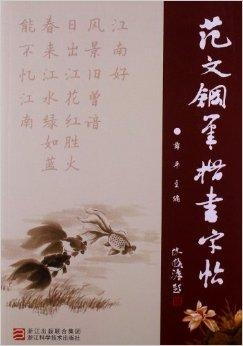 范文钢笔楷书字帖
韩平 主编
江南好
风景旧曾谙
日出江花红胜火
春来江水绿如蓝
能不忆江南
浙江出版联合集团
浙江科学技术出版社